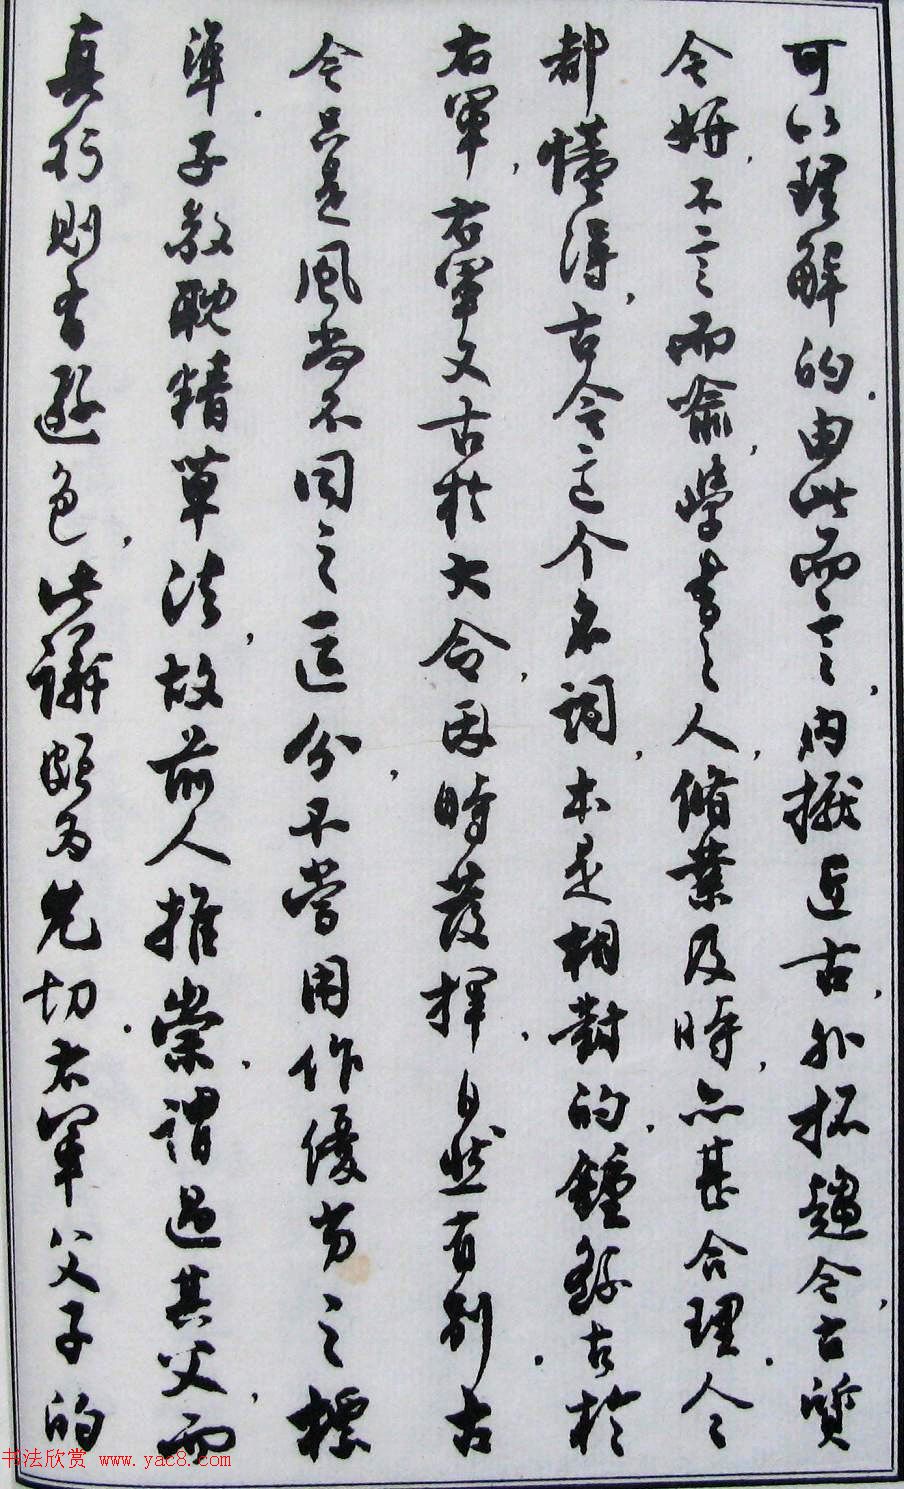 可以理解的.由此而言,内擫近古,外拓趨今,古質
今妍,不言而喻,學書之人,脩業及時,亦甚合理.人人
都懂得,古今这个名詞,本是相對的,鍾繇古於
右軍,右軍又古於大令,因時發揮,自然有别,古
今只是風尚不同之區分,不當用作優劣之標
準.子敬耽精草法,故前人推崇,謂過其父,而
真行則有遜色,此議頗为允切.右軍父子的
书法欣赏 www.yac8.com